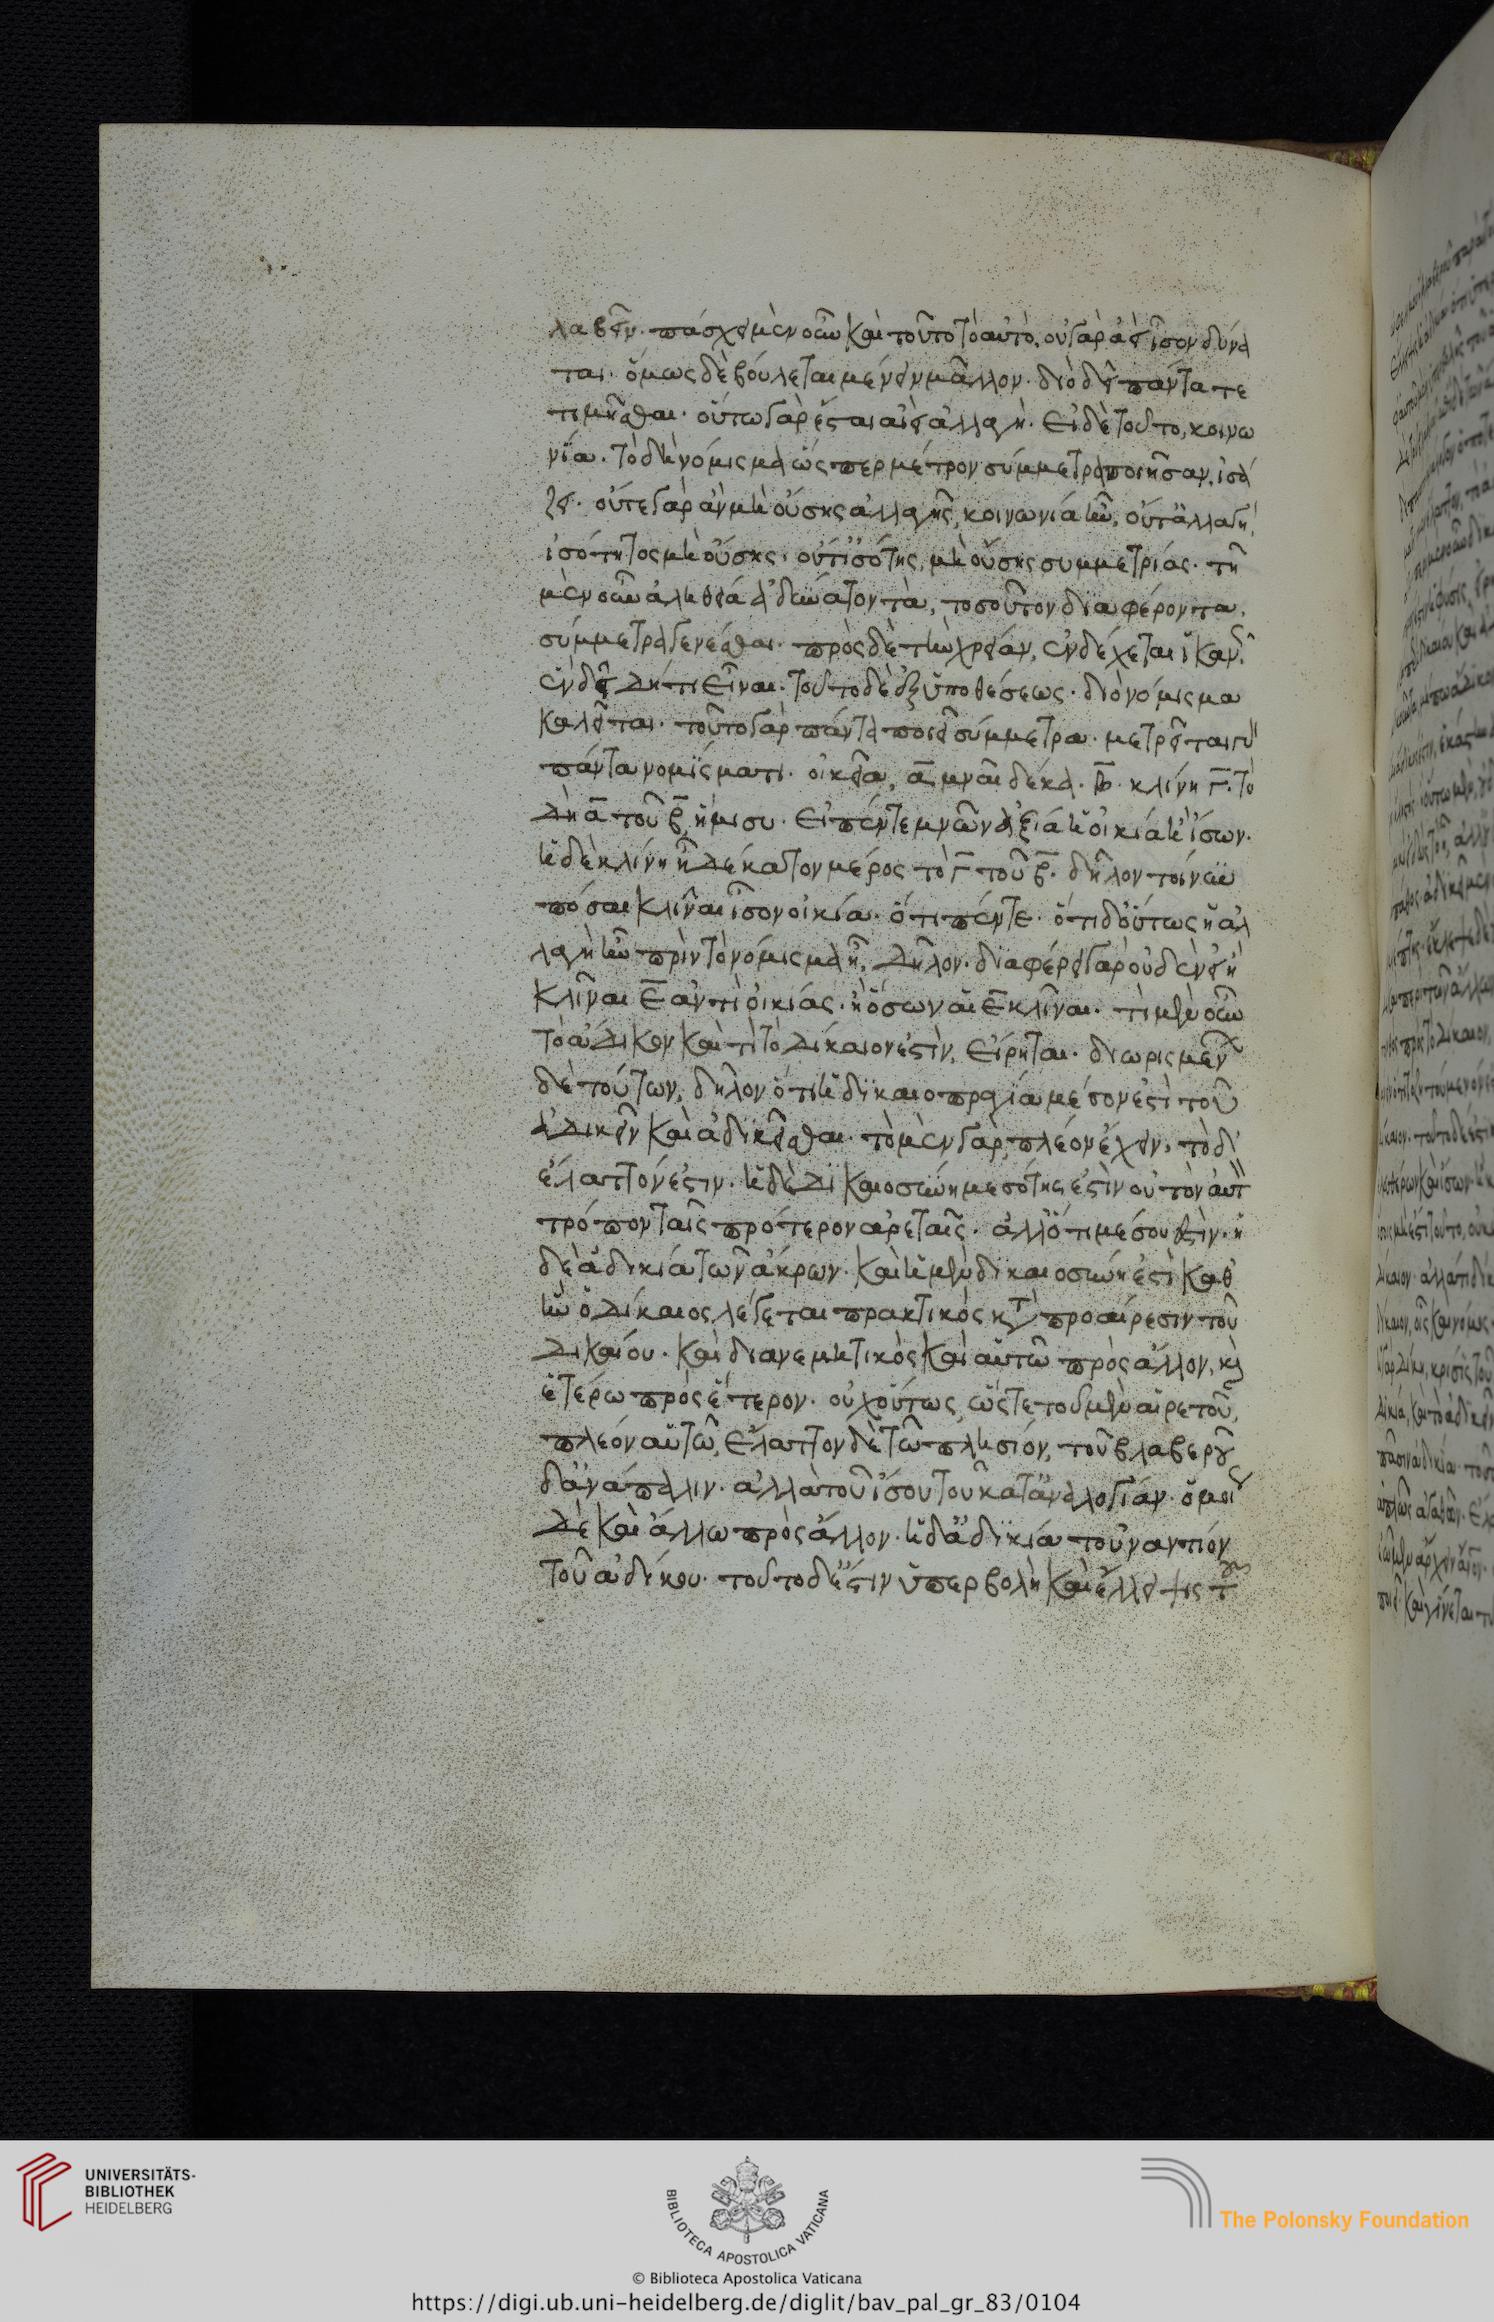 λαβεῖν. πάσχει μὲν οὖν καὶ τοῦτο τὸ αὐτό. οὐ γὰρ ἀεὶ ἴσον δύνα
ται. ὅμως δὲ βούλεται μένειν μᾶλλον. διὸ δεῖ πάντα τε
τιμῆσθαι. οὕτω γὰρ ἔσται αἰεὶ ἀλλαγή. εἰ δὲ τοῦτο, κοινω
νία. τὸ δὴ νόμισμα ὥσπερ μέτρον σύμμετρα ποιῆσαν, ἰσά
ζει. οὔτε γὰρ ἂν μὴ οὔσης ἀλλαγῆς, κοινωνία ἦν, οὔτ' ἀλλαγὴ
ἰσότητος μὴ οὔσης. οὔτ' ἰσότης, μὴ οὔσης συμμετρίας. τῇ
μὲν οὖν ἀληθείᾳ ἀδύνατον τὰ, τοσοῦτον διαφέροντα,
σύμμετρα γενέσθαι. πρὸς δὲ τὴν χρείαν, ἐνδέχεται ἱκανῶς.
ἓν δεῖ δή τι εἶναι. τοῦτο δὲ ἐξ ὑποθέσεως. διὸ νόμισμα
καλεῖται. τοῦτο γὰρ πάντα ποιεῖ σύμμετρα. μετρεῖται γὰρ
πάντα νομίσματι. οἰκεία, α μναῖ δέκα. β. κλίνη γ. τὸ
δὴ α τοῦ β ἥμισυ. εἰ πέντε μνῶν ἀξία ἡ οἰκία ἢ ἴσων.
ἡ δὲ κλίνη ἢ δέκατον μέρος τὸ γ τοῦ β. δῆλον τοίνυν
πόσαι κλῖναι ἴσον οἰκίᾳ. ὅτι πέντε. ὅτι δ' οὕτως ἡ ἀλ
λαγὴ ἦν πρὶν τὸ νόμισμα ἦ, δῆλον. διαφέρει γὰρ οὐδὲν εἰ ἢ
κλῖναι ε ἀντὶ οἰκίας. ἢ ὅσων αἱ ε κλῖναι. τί μὲν οὖν
τὸ ἄδικον καὶ τί τὸ δίκαιον ἐστὶν, εἴρηται. διωρισμένων
δὲ τούτων, δῆλον ὅτι ἡ δικαιοπραγία μέσον ἐστὶ τοῦ
ἀδικεῖν καὶ ἀδικεῖσθαι. τὸ μὲν γὰρ, πλέον ἔχειν, τὸ δ'
ἔλαττόν ἐστιν. ἡ δὲ δικαιοσύνη μεσότης ἐστὶν οὐ τὸν αὐτὸν
τρόπον ταῖς πρότερον ἀρεταῖς. ἀλλ' ὅτι μέσου ἐστίν. ἡ
δὲ ἀδικία τῶν ἄκρων. καὶ ἡ μὲν δικαιοσύνη ἐστὶ καθ'
ἣν ὁ δίκαιος λέγεται πρακτικὸς κατὰ προαίρεσιν τοῦ
δικαίου. καὶ διανεμητικὸς καὶ αὑτῷ πρὸς ἄλλον, καὶ
ἑτέρω πρὸς ἕτερον. οὐχ οὕτως, ὥστε τοῦ μὲν αἱρετοῦ,
πλέον αὑτῷ, ἔλαττον δὲ τῷ πλησίον, τοῦ βλαβεροῦ
δ' ἀνάπαλιν. ἀλλὰ τοῦ ἴσου τοῦ κατ' ἀναλογίαν. ὁμοίως
δὲ καὶ ἄλλω πρὸς ἄλλον. ἡ δ' ἀδικία τοὐναντίον
τοῦ ἀδίκου. τοῦτο δ' ἔστιν ὑπερβολὴ καὶ ἔλλειψις τοῦ
UNIVERSITÄTS-
BIBLIOTHEK
HEIDELBERG
BIBLIOTECA APOSTOLICA VATICANA
The Polonsky Foundation
© Biblioteca Apostolica Vaticana
https://digi.ub.uni-heidelberg.de/diglit/bav_pal_gr_83/0104